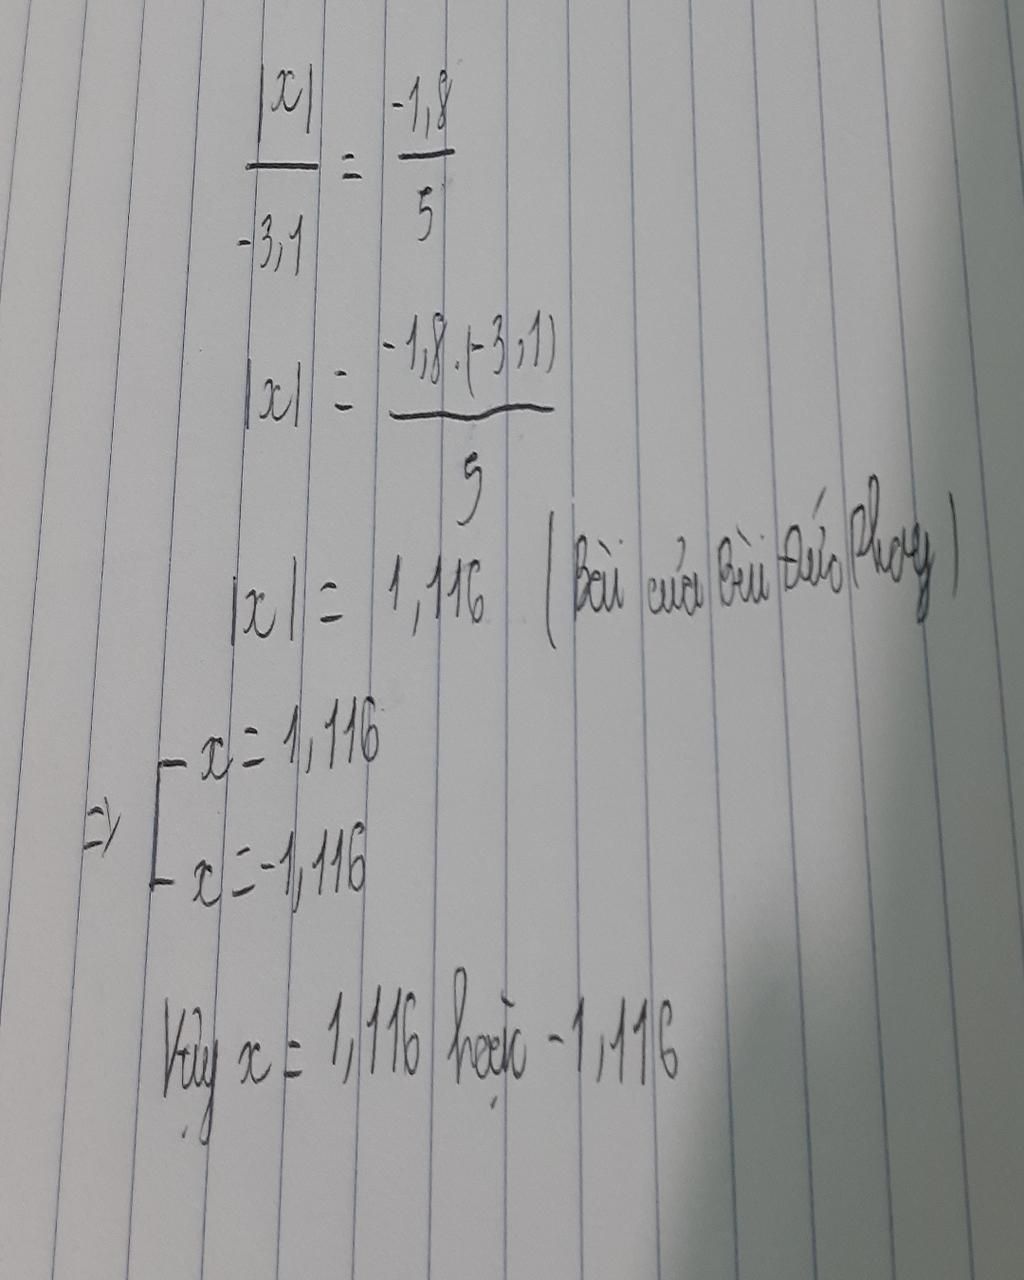 |x| / -3,1 = -1,8 / 5
|x| = -1,8.(-3,1) / 5
|x| = 1,116 (Bài của Bùi Đức Phay)
⇒ [ x = 1,116
x = -1,116
Vậy x = 1,116 hoặc -1,116